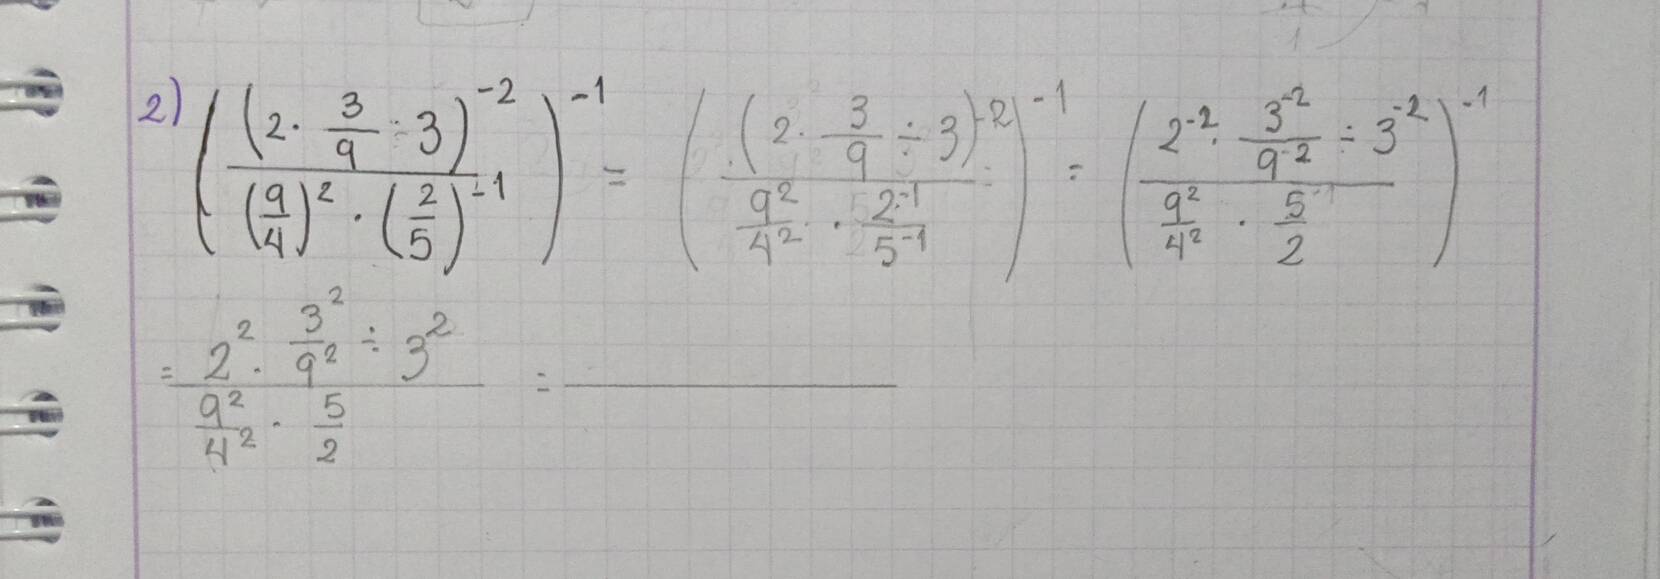 2) ((2 · 3/9 ÷ 3)^-2 / ((9/4)^2 · (2/5)^-1))^-1 = ((2 · 3/9 ÷ 3)^-2 / (9^2/4^2 · 2^-1/5^-1))^-1 = ((2^-2 · 3^-2/9^-2 ÷ 3^-2) / (9^2/4^2 · 5/2))^-1
= (2^2 · 3^2/9^2 ÷ 3^2) / (9^2/4^2 · 5/2) =